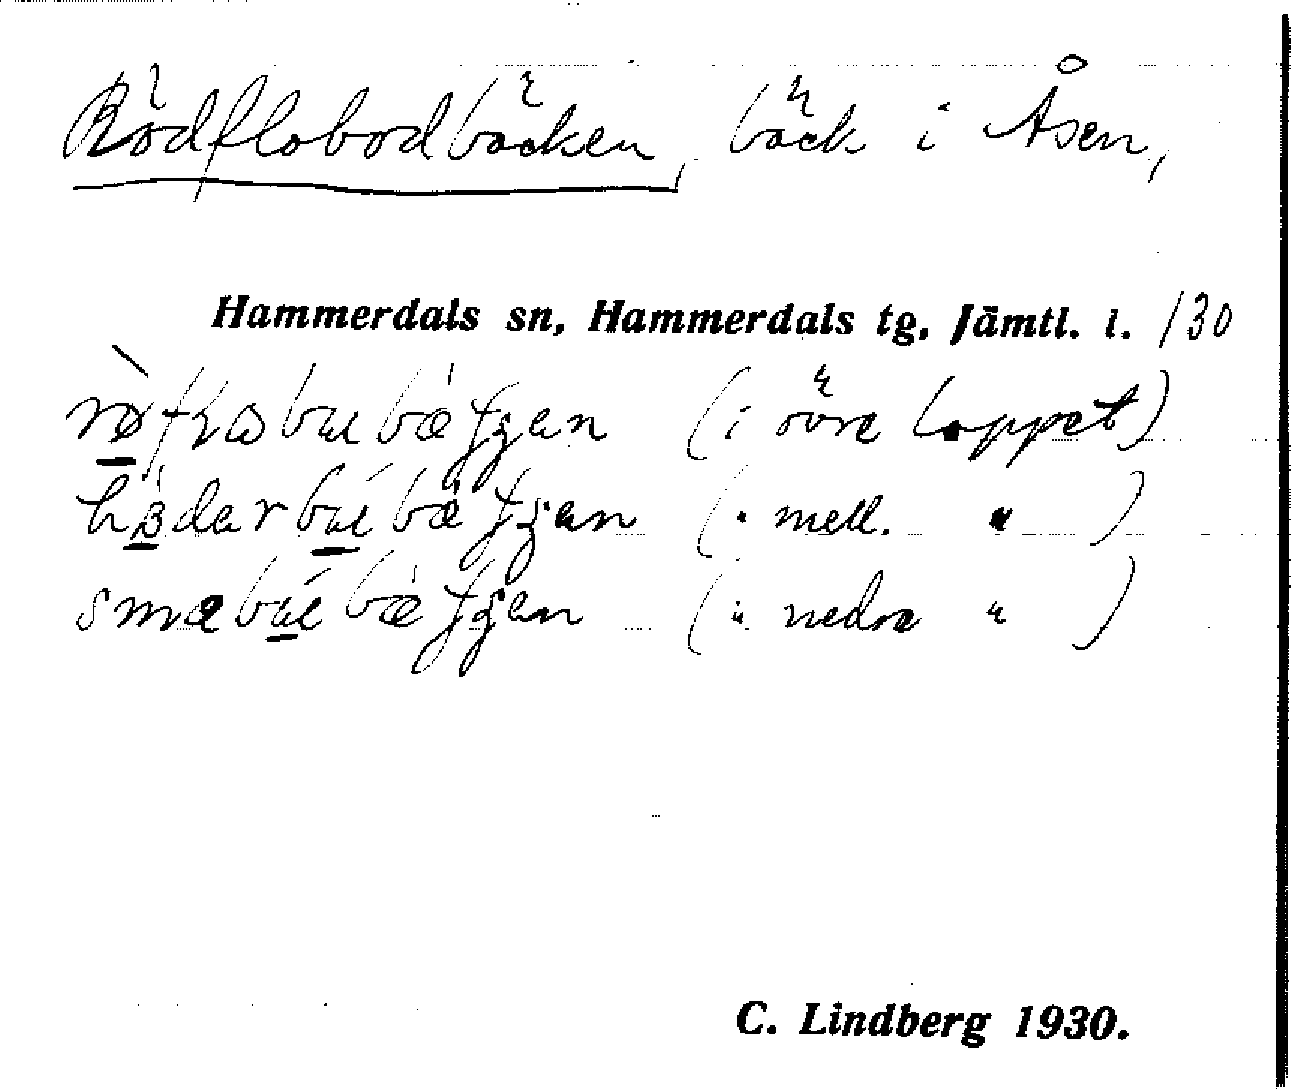 Rödflobodbäcken, bäck i Åsen,
Hammerdals sn, Hammerdals tg, Jämtl. l. 130
(i övre loppet)
(" mell. " )
(" nedre " )
C. Lindberg 1930.